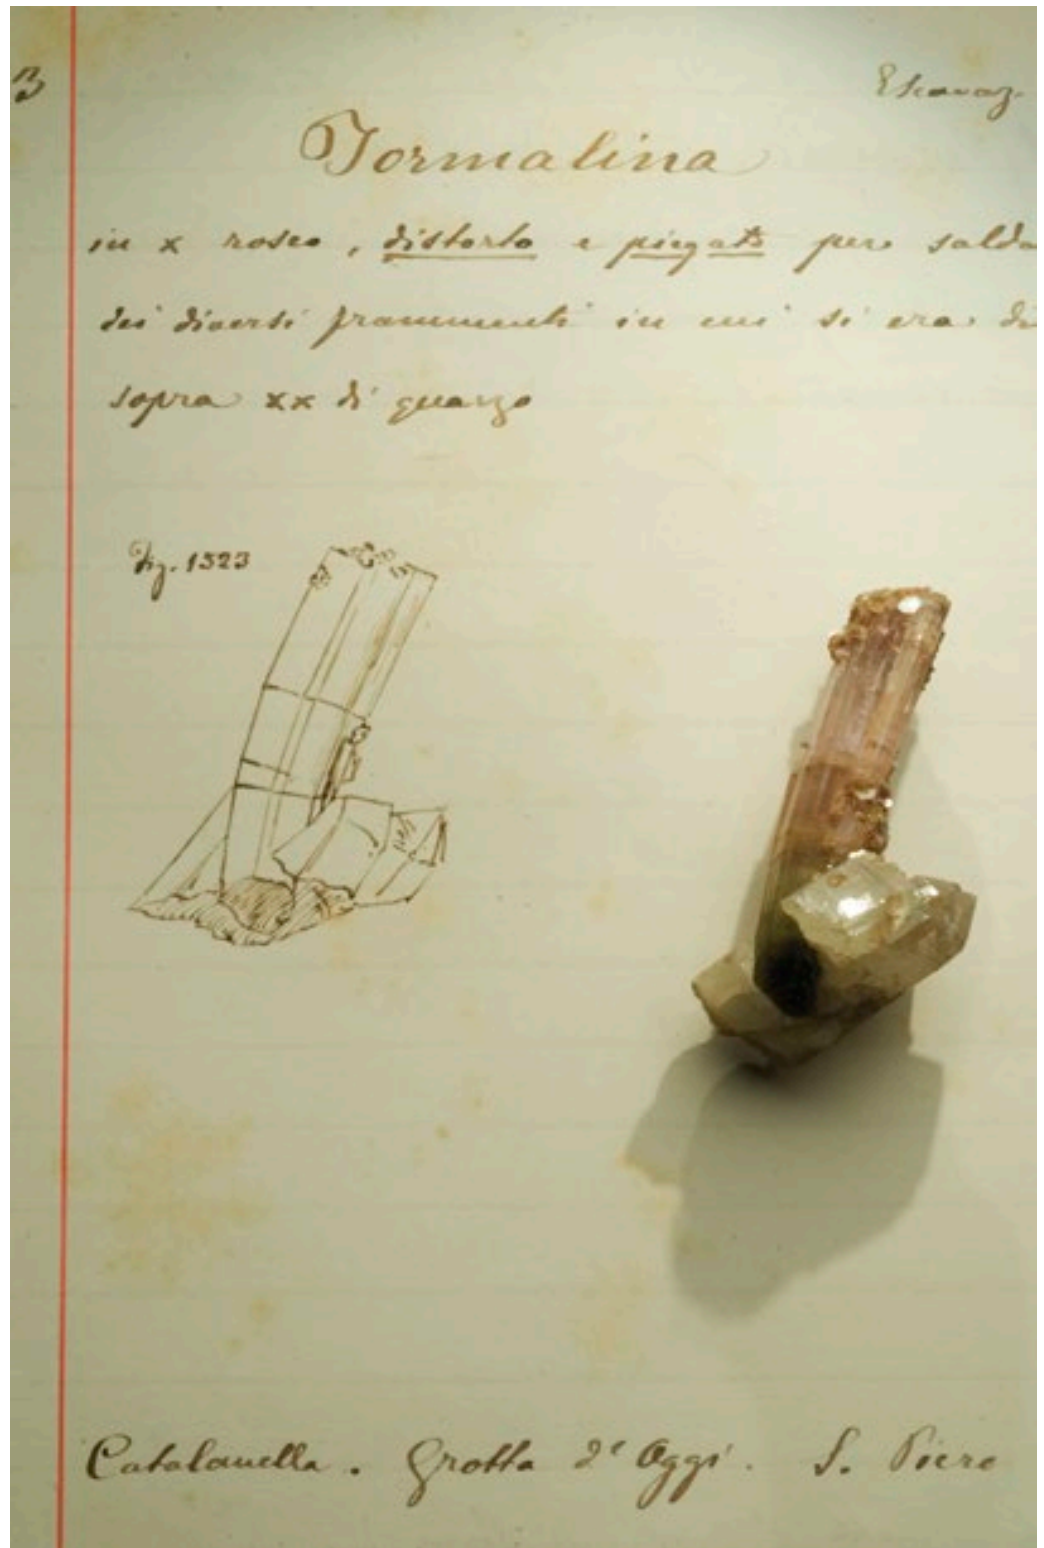 3 Escavaz.
Tormalina
in x roseo, distorto e piegato per salda
dei diversi frammenti in cui si era di
sopra xx di quarzo
Fig. 1323
Catalanella. Grotta d' Oggi. S. Piero